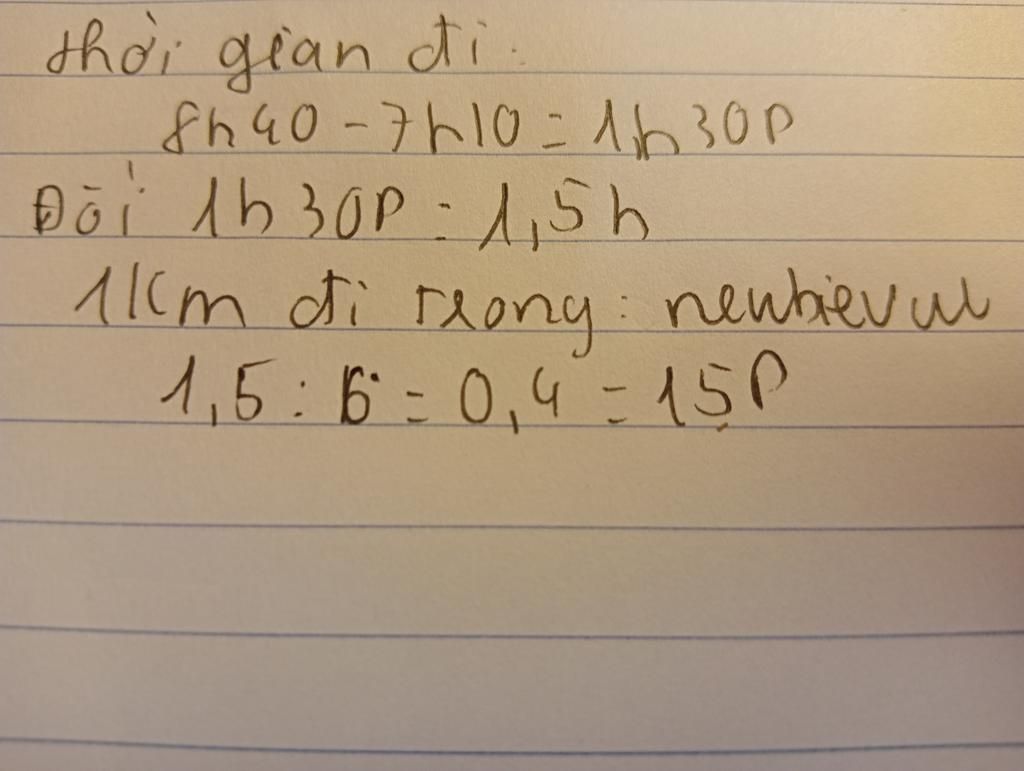 thời gian đi.
8h40 - 7h10 = 1h30P
Đổi 1h30P = 1,5h
1km đi trong:
1,5 : 6 = 0,4 = 15P